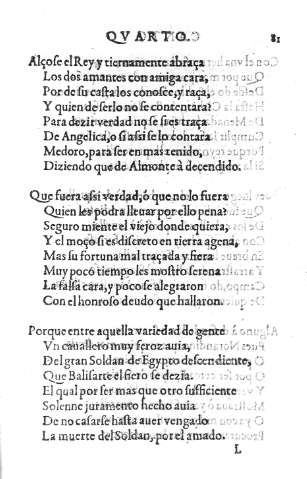 QVARTO. 81
Alçose el Rey y tiernamente abraça
Los dos amantes con amiga cara,
Por de su casta los conosce, y raça,
Y quien de serlo no se contentara?
Para dezir verdad no se si es traça
De Angelica, o si assi se lo contara
Medoro, para ser en mas tenido,
Diziendo que de Almonte à decendido.
Que fuera assi verdad, ó que no lo fuera
Quien les podra lleuar por ello pena?
Seguro miente el viejo donde quiera,
Y el moço si es discreto en tierra agena,
Mas su fortuna mal traçada y fiera
Muy poco tiempo les mostro serena
La falsa cara, y poco se alegraron
Con el honroso deudo que hallaron.
Porque entre aquella variedad de gente
Vn cauallero muy feroz auia,
Del gran Soldan de Egypto descendiente,
Que Balisarte el fiero se dezia.
El qual por ser mas que otro sufficiente
Solenne juramento hecho auia
De no casarse hasta auer vengado
La muerte del Soldan, por el amado.
L